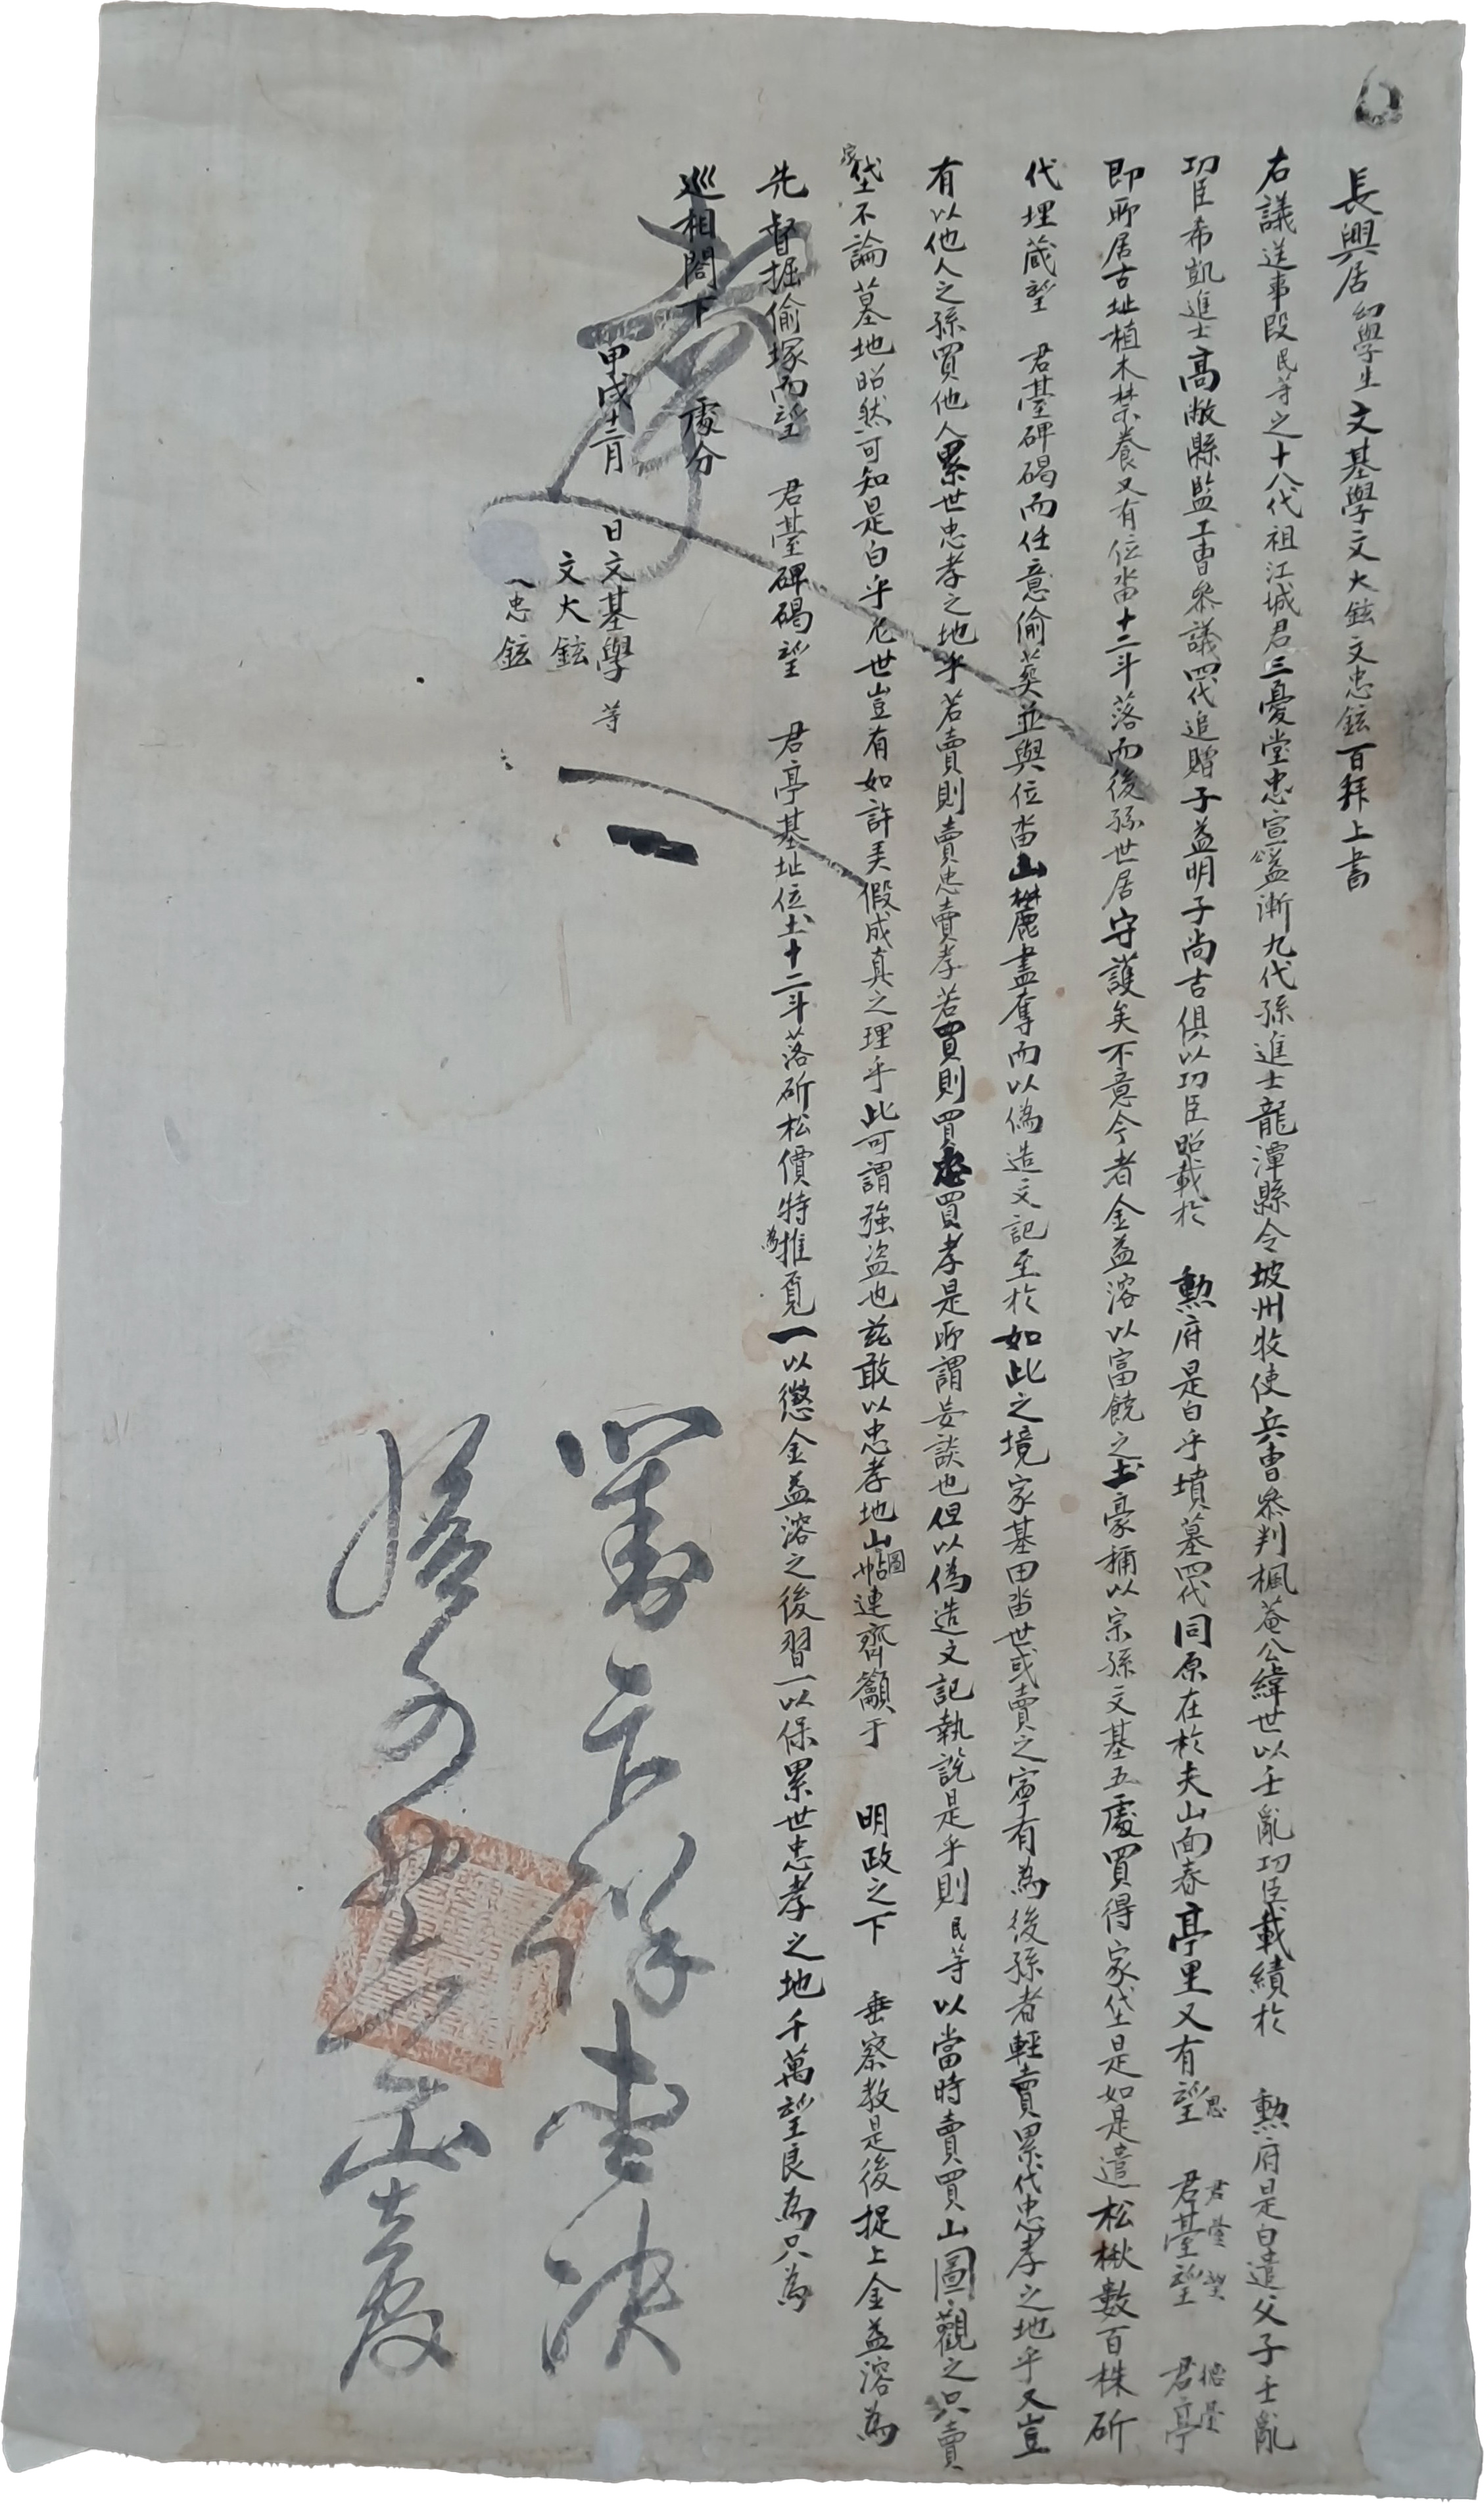 長興居幼學生文基學文大鉉文忠鉉百拜上書
右議送事段民等之十八代祖江城君三憂堂忠宣公益漸九代孫進士龍潭縣令坡州牧使兵曹參判楓菴公緯世以壬亂功臣載績於 勲府是白遣父子壬亂
功臣希凱進士高敞縣監工曹參議四代追贈子益明子尚吉俱以功臣昭載於 勲府是白乎墳墓四代同原在於夫山面春亭里又有望思 君臺望 君亭
君臺望 德臺
即所居古址植木禁養又有位畓十二斗落而後孫世居守護矣不意今者金益溶以富饒之土豪稱以宗孫文基五處買得家垈是如是遣松楸數百株斫
代埋葳望 君臺碑碣而任意偷葬並與位畓山麓盡奪而以偽造文記至於如此之境家基田畓世或賣之寧有為後孫者輕賣累代忠孝之地乎又豈
有以他人之孫買他人累世忠孝之地乎若賣則賣忠賣孝若買則買忠買孝是所謂妄談也但以偽造文記執說是乎則民等以當時賣買山圖觀之只賣
家垈不論墓地昭然可知是白乎尼世豈有如許弄假成真之理乎此可謂強盜也玆敢以忠孝地山圖帖連齊籲于 明政之下 垂察教是後捉上金益溶為
先督掘偷塚而望 君臺碑碣望 君亭基址位土十二斗落斫松價特為推覓一以懲金益溶之後習一以保累世忠孝之地千萬望良為只為
巡相閤下 處分
甲戌十二月 日文基學 等
文大鉉
忠鉉